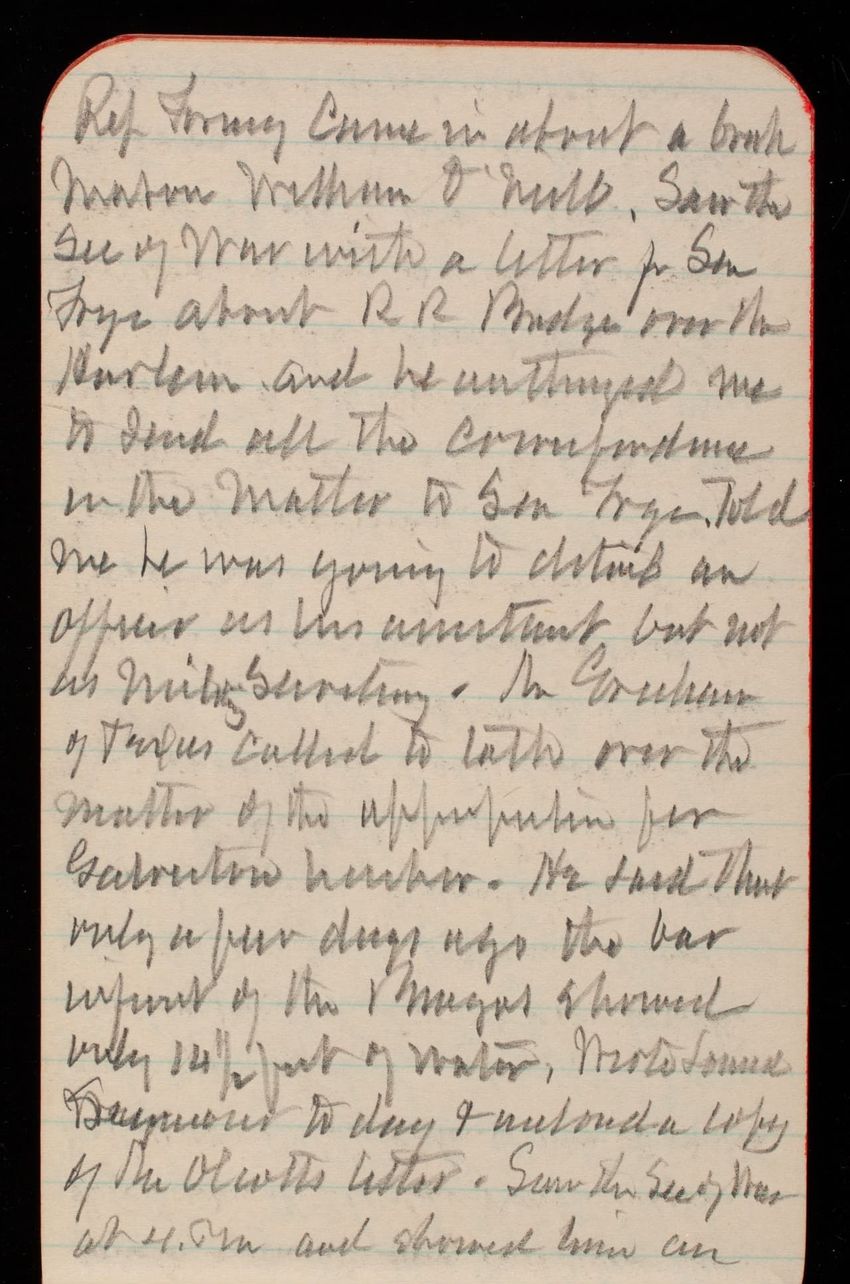 Rep Forney Came in about a brick
Mason William O'Neill. Saw the
Sec of War with a letter fr Sen
Frye about R R Bridge over the
Harlem and he authorized me
to send all the correspondence
in the Matter to Sen Frye. Told
me he was going to detail an
officer as his assistant but not
as Mily Secretary. Mr
of Texas called to talk over the
matter of the appropriation for
Galveston harbor. He said that
only a few days ago the bar
in front of the showed
only 14 1/2 feet of water, Wrote
to day & enclosed a copy
of Mr Olcotts letter. Saw the Sec of War
at 4. Pm and showed him an